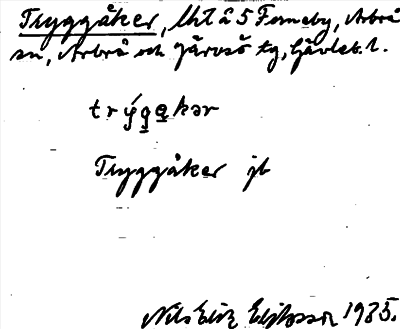 Tryggåker, lht å 5 Forneby, Arbrå
sn, Arbrå och Järvsö tg, Gävleb. l.
trýgakər
Tryggåker jb
Nils Erik Eliasson 1935.